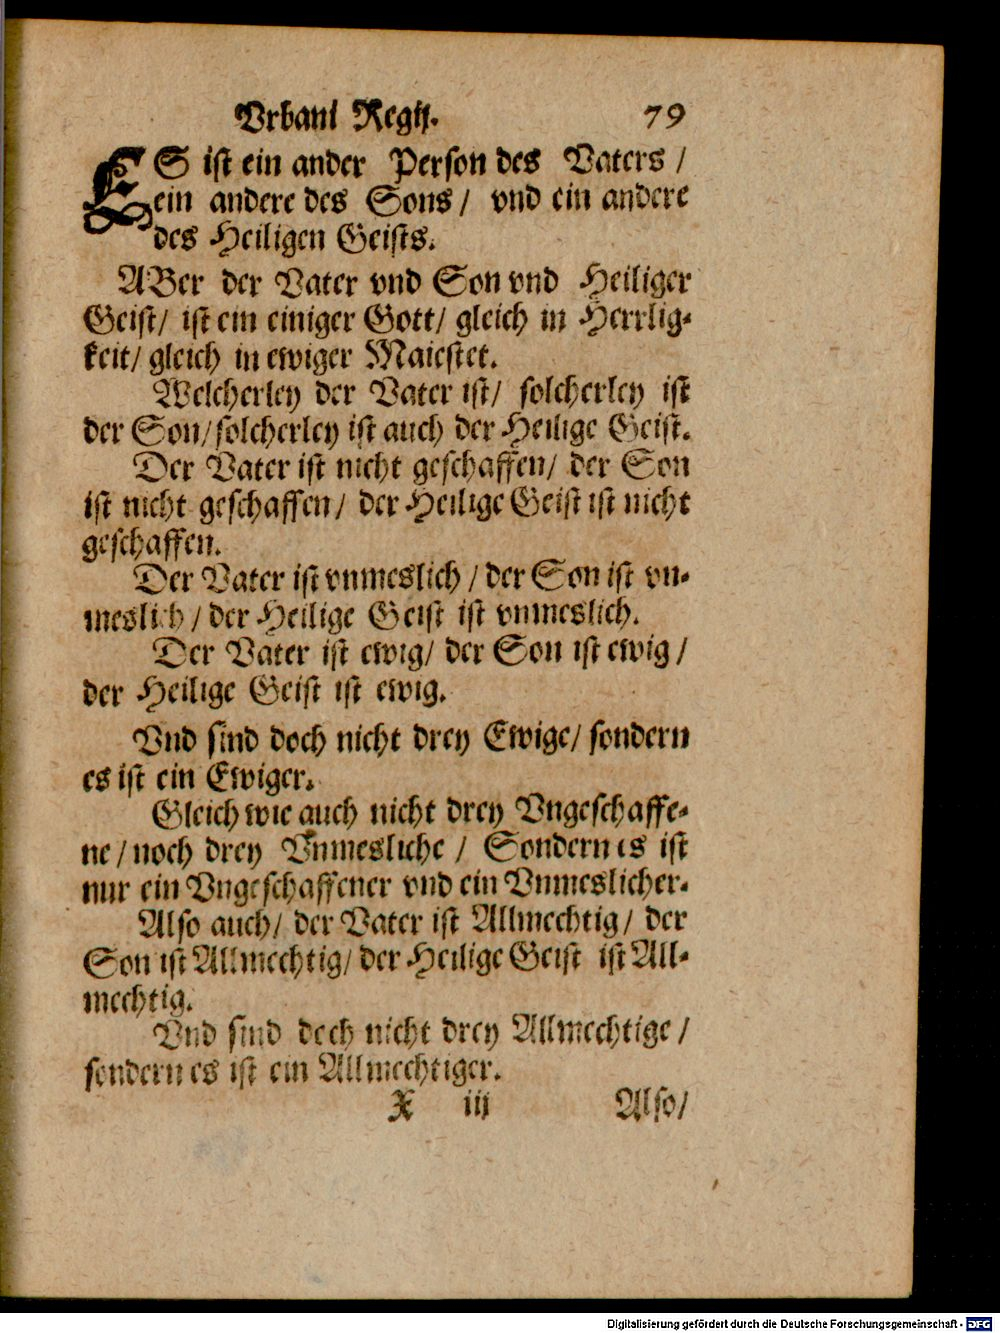 Vrbani Regij. 79
ES ist ein ander Person des Vaters /
ein andere des Sons / vnd ein andere
des Heiligen Geists.
ABer der Vater vnd Son vnd Heiliger
Geist / ist ein einiger Gott / gleich in Herrlig-
keit / gleich in ewiger Maiestet.
Welcherley der Vater ist / solcherley ist
der Son / solcherley ist auch der Heilige Geist.
Der Vater ist nicht geschaffen / der Son
ist nicht geschaffen / der Heilige Geist ist nicht
geschaffen.
Der Vater ist vnmeslich / der Son ist vn-
meslich / der Heilige Geist ist vnmeslich.
Der Vater ist ewig / der Son ist ewig /
der Heilige Geist ist ewig.
Vnd sind doch nicht drey Ewige / sondern
es ist ein Ewiger.
Gleich wie auch nicht drey Vngeschaffe-
ne / noch drey Vnmesliche / Sondern es ist
nur ein Vngeschaffener vnd ein Vnmeslicher.
Also auch / der Vater ist Allmechtig / der
Son ist Allmechtig / der Heilige Geist ist All-
mechtig.
Vnd sind doch nicht drey Allmechtige /
sondern es ist ein Allmechtiger.
X iij Also /
Digitalisierung gefördert durch die Deutsche Forschungsgemeinschaft - DFG